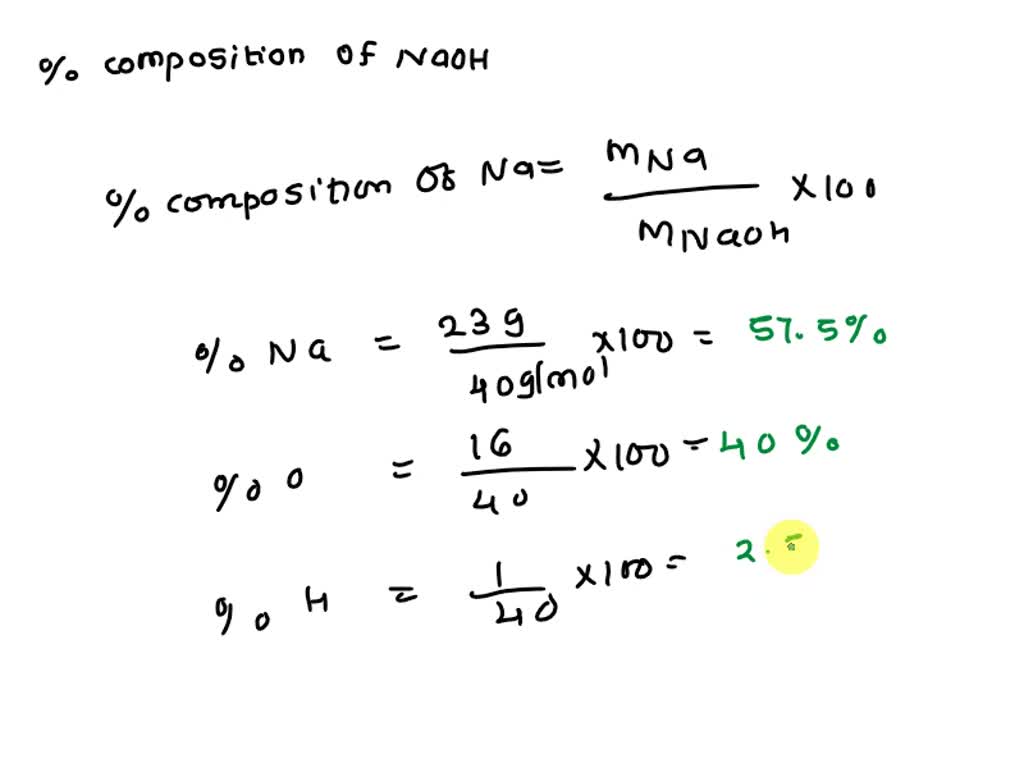 % composition of NaOH
% composition of Na = mNa / MNaOH × 100
% Na = 23g / 40g/mol × 100 = 57.5%
% O = 16 / 40 × 100 = 40%
% H = 1 / 40 × 100 = 2.